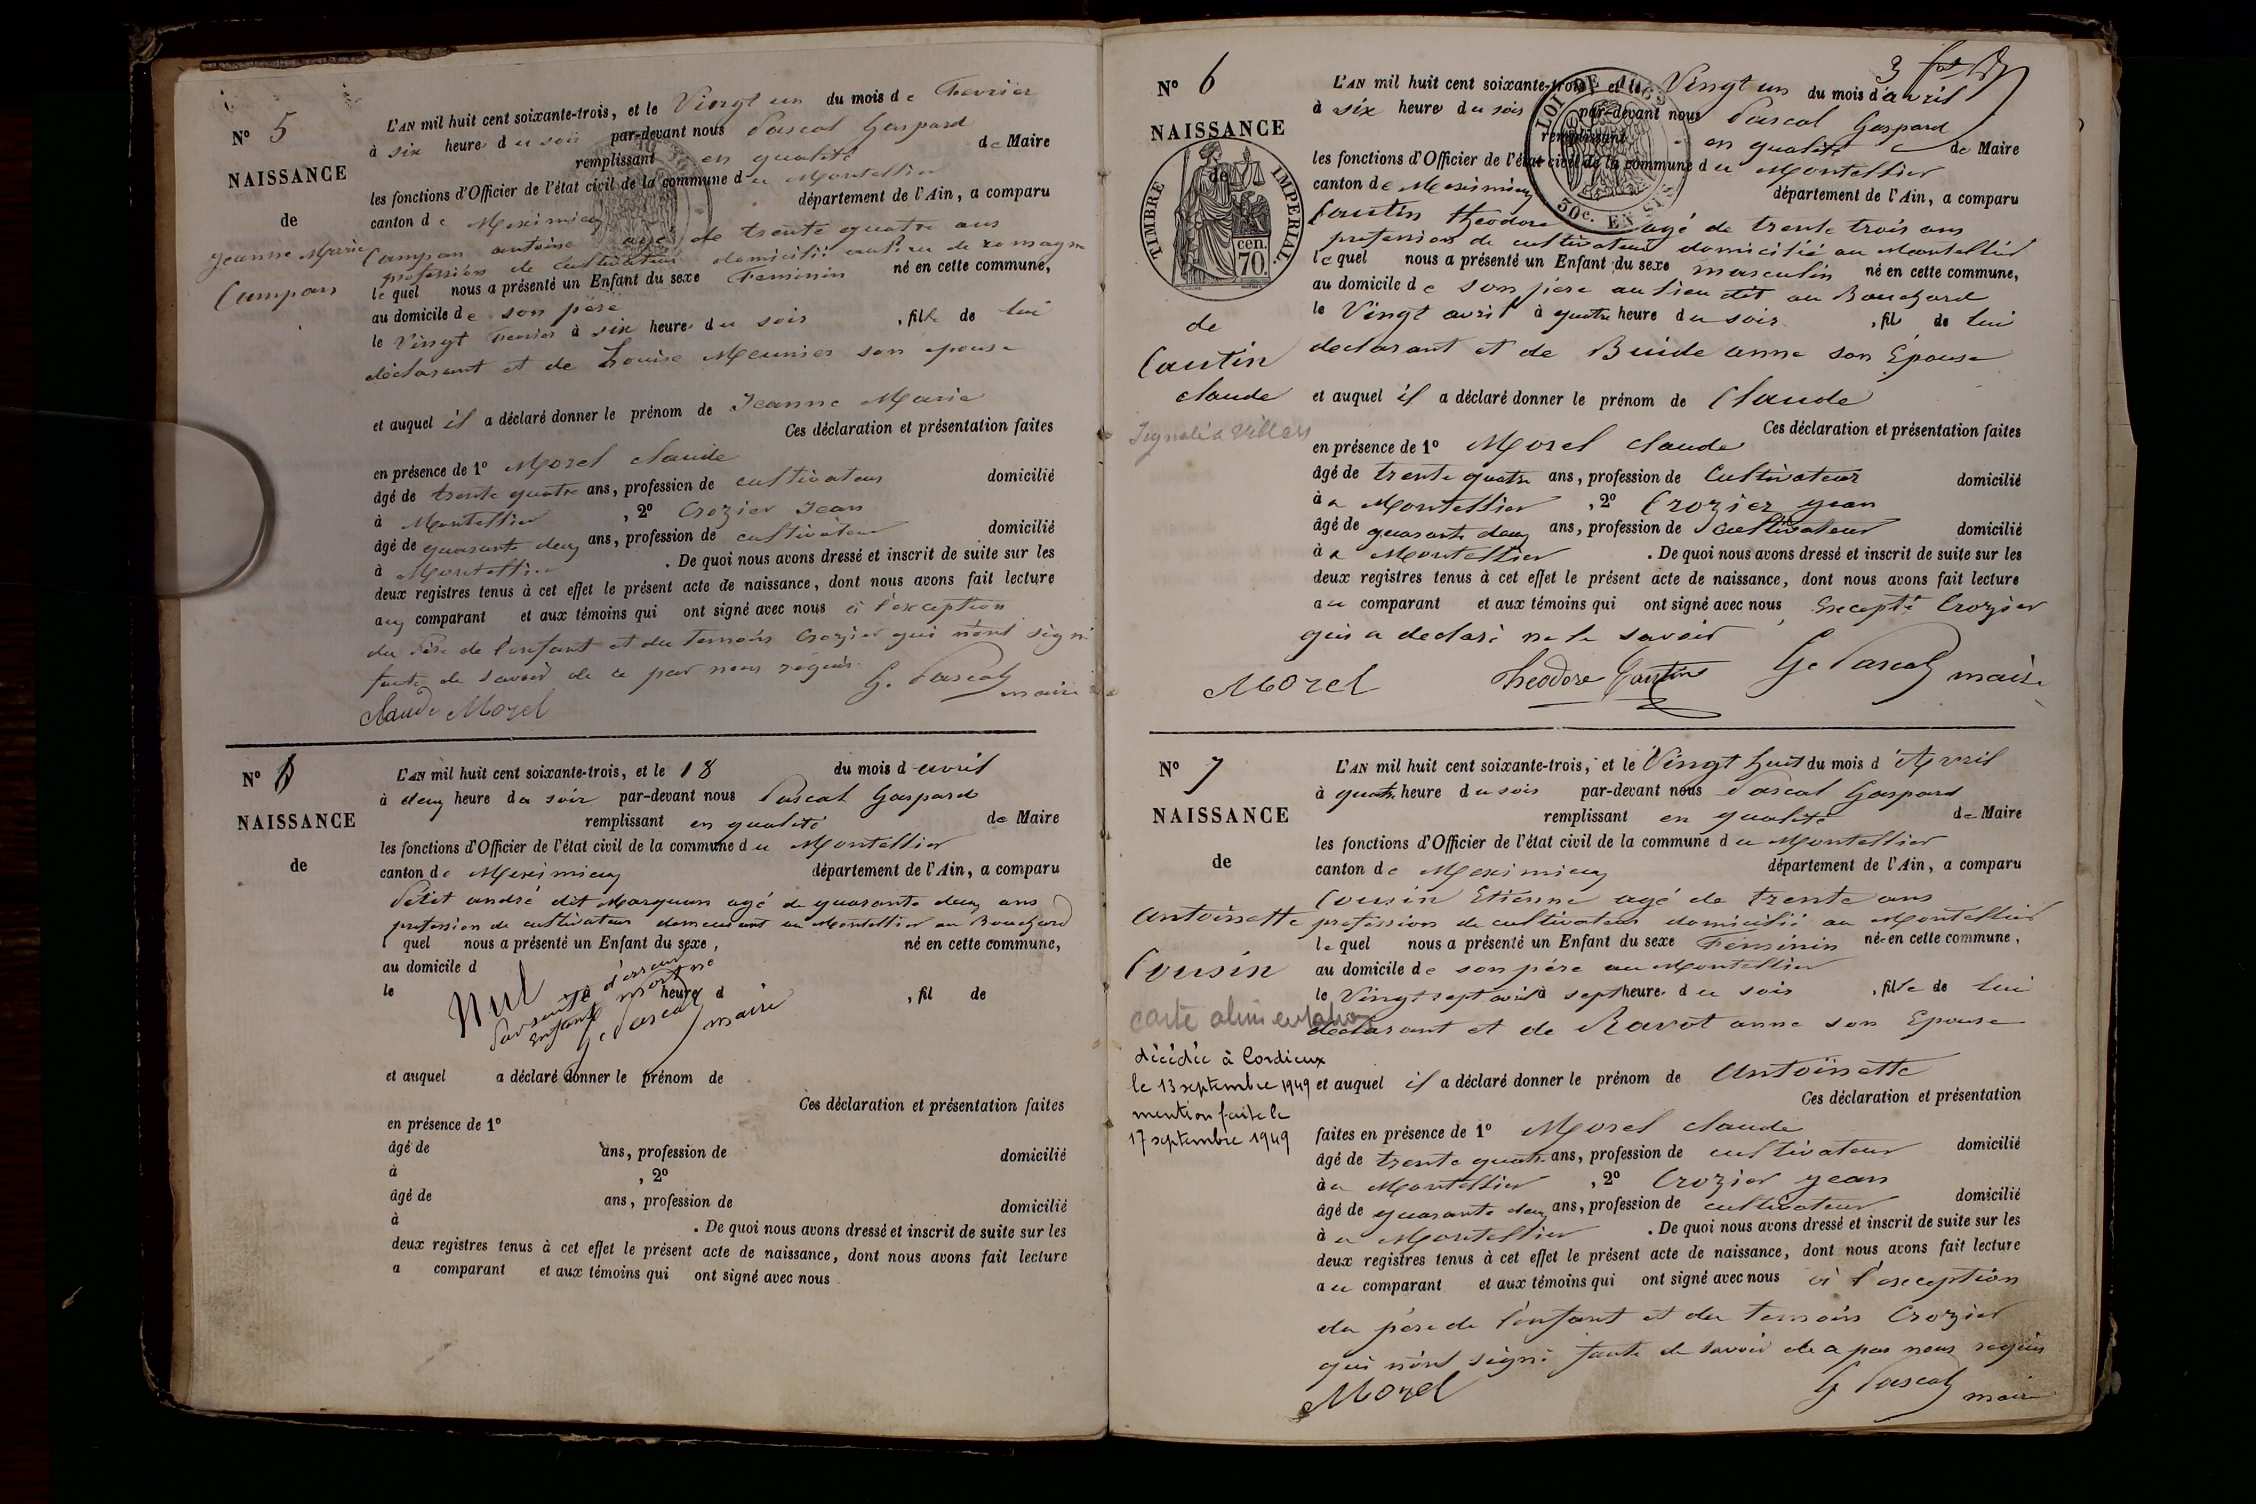 N° 5
NAISSANCE
de
Jeanne Marie
Campan
L'AN mil huit cent soixante-trois, et le Vingt un du mois de Fevrier
à six heures du soir par-devant nous Pascal Gaspard
remplissant en qualité de Maire
les fonctions d'Officier de l'état civil de la commune du Montellier
canton de Meximieux département de l'Ain, a comparu
Campan antoine agé de trente quatre ans
profession de cultivateur domicilié
lequel nous a présenté un Enfant du sexe Feminin né en cette commune,
au domicile de son père
le Vingt Fevrier à six heures du soir, fille de lui
déclarant et de Louise Meunier son epouse
et auquel il a déclaré donner le prénom de Jeanne Marie
Ces déclaration et présentation faites
en présence de 1° Morel claude
âgé de trente quatre ans, profession de cultivateur domicilié
à Montellier, 2° Crozier Jean
âgé de quarante deux ans, profession de cultivateur domicilié
à Montellier. De quoi nous avons dressé et inscrit de suite sur les
deux registres tenus à cet effet le présent acte de naissance, dont nous avons fait lecture
aux comparant et aux témoins qui ont signé avec nous à l'exception
du Père de l'enfant et du temoin Crozier qui n'ont signé
faute de savoir de ce par nous requis
G. Pascal maire
Claude Morel
N° 6
NAISSANCE
de
L'AN mil huit cent soixante-trois, et le 18 du mois d avril
à deux heure du soir par-devant nous Pascal Gaspard
remplissant en qualité de Maire
les fonctions d'Officier de l'état civil de la commune du Montellier
canton de Meximieux département de l'Ain, a comparu
Petit andré dit Marquan agé de quarante deux ans
profession de cultivateur demeurant au Montellier au Bouchard
l quel nous a présenté un Enfant du sexe, né en cette commune,
au domicile d
le à heure d, fil de
Nul
Par cause d'erreur
enfant mort né
G. Pascal maire
et auquel a déclaré donner le prénom de
Ces déclaration et présentation faites
en présence de 1°
âgé de ans, profession de domicilié
à, 2°
âgé de ans, profession de domicilié
à. De quoi nous avons dressé et inscrit de suite sur les
deux registres tenus à cet effet le présent acte de naissance, dont nous avons fait lecture
a comparant et aux témoins qui ont signé avec nous
3
N° 6
NAISSANCE
de
TIMBRE IMPERIAL.
cen. 70.
LOI DE 1862
50c. EN SUS
de
Cautin
claude
Signalé à Villars
L'AN mil huit cent soixante-trois, et le Vingt un du mois d'avril
à six heure du soir par-devant nous Pascal Gaspard
remplissant en qualité de Maire
les fonctions d'Officier de l'état civil de la commune du Montellier
canton de Meximieux département de l'Ain, a comparu
Cautin théodore agé de trente trois ans
profession de cultivateur domicilié au Montellier
lequel nous a présenté un Enfant du sexe masculin né en cette commune,
au domicile de son père au lieu dit au Bouchard
le Vingt avril à quatre heure du soir, fil de lui
declarant et de Buide anne son Epouse
et auquel il a déclaré donner le prénom de Claude
Ces déclaration et présentation faites
en présence de 1° Morel claude
âgé de trente quatre ans, profession de Cultivateur domicilié
à a Montellier, 2° Crozier jean
âgé de quarante deux ans, profession de Cultivateur domicilié
à a Montellier. De quoi nous avons dressé et inscrit de suite sur les
deux registres tenus à cet effet le présent acte de naissance, dont nous avons fait lecture
au comparant et aux témoins qui ont signé avec nous, Excepté Crozier
qui a declaré ne le savoir
Morel Theodore Cautin G. Pascal maire
N° 7
NAISSANCE
de
Antoinette
Cousin
carte alimentation
décédée à Cordieux
le 13 septembre 1949
mention faite le
17 septembre 1949
L'AN mil huit cent soixante-trois, et le Vingt huit du mois d'Avril
à quatre heure du soir par-devant nous Pascal Gaspard
remplissant en qualité de Maire
les fonctions d'Officier de l'état civil de la commune du Montellier
canton de Meximieux département de l'Ain, a comparu
Cousin Etienne agé de trente ans
profession de cultivateur domicilié au Montellier
lequel nous a présenté un Enfant du sexe Féminin né en cette commune,
au domicile de son père au Montellier
le Vingt sept avril à sept heures du soir, fille de lui
déclarant et de Ravot anne son Epouse
et auquel il a déclaré donner le prénom de Antoinette
Ces déclaration et présentation
faites en présence de 1° Morel claude
âgé de trente quatre ans, profession de cultivateur domicilié
à a Montellier, 2° Crozier jean
âgé de quarante deux ans, profession de cultivateur domicilié
à a Montellier. De quoi nous avons dressé et inscrit de suite sur les
deux registres tenus à cet effet le présent acte de naissance, dont nous avons fait lecture
au comparant et aux témoins qui ont signé avec nous à l'exception
du père de l'enfant et du temoin Crozier
qui n'ont signé faute de savoir de ce par nous requis
Morel G. Pascal maire